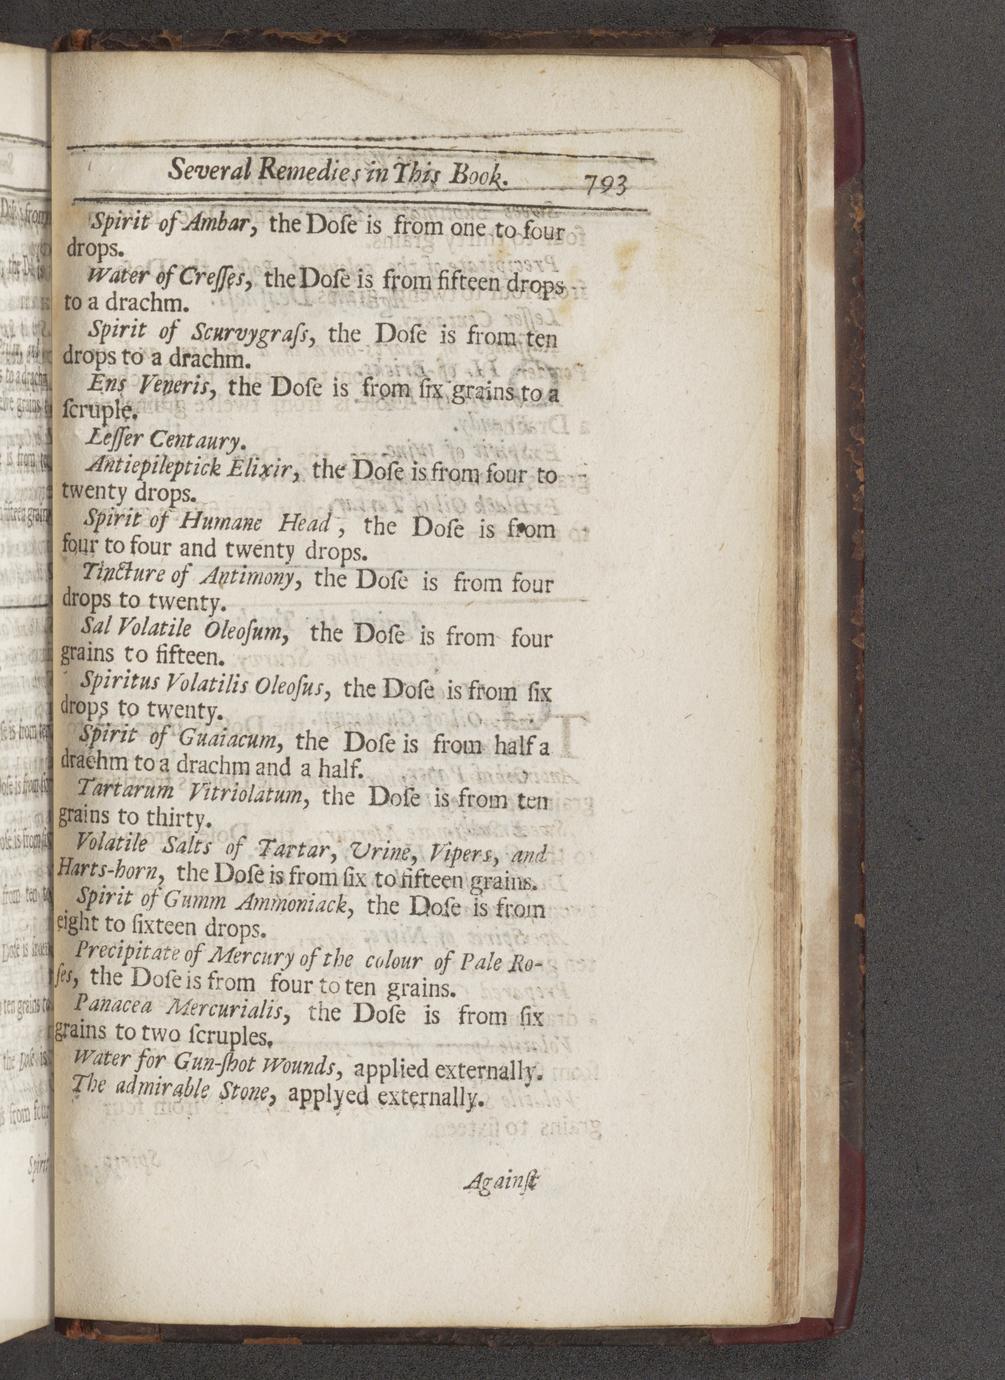 Several Remedies in This Book. 793
Spirit of Ambar, the Doſe is from one to four
drops.
Water of Creſſes, the Doſe is from fifteen drops
to a drachm.
Spirit of Scurvygraſs, the Doſe is from ten
drops to a drachm.
Ens Veneris, the Doſe is from ſix grains to a
ſcruple.
Leſſer Centaury.
Antiepileptick Elixir, the Doſe is from four to
twenty drops.
Spirit of Humane Head, the Doſe is from
four to four and twenty drops.
Tincture of Antimony, the Doſe is from four
drops to twenty.
Sal Volatile Oleoſum, the Doſe is from four
grains to fifteen.
Spiritus Volatilis Oleoſus, the Doſe is from ſix
drops to twenty.
Spirit of Guaiacum, the Doſe is from half a
drachm to a drachm and a half.
Tartarum Vitriolatum, the Doſe is from ten
grains to thirty.
Volatile Salts of Tartar, Urine, Vipers, and
Harts-horn, the Doſe is from ſix to fifteen grains.
Spirit of Gumm Ammoniack, the Doſe is from
eight to ſixteen drops.
Precipitate of Mercury of the colour of Pale Ro-
ſes, the Doſe is from four to ten grains.
Panacea Mercurialis, the Doſe is from ſix
grains to two ſcruples.
Water for Gun-ſhot Wounds, applied externally.
The admirable Stone, applyed externally.
Againſt